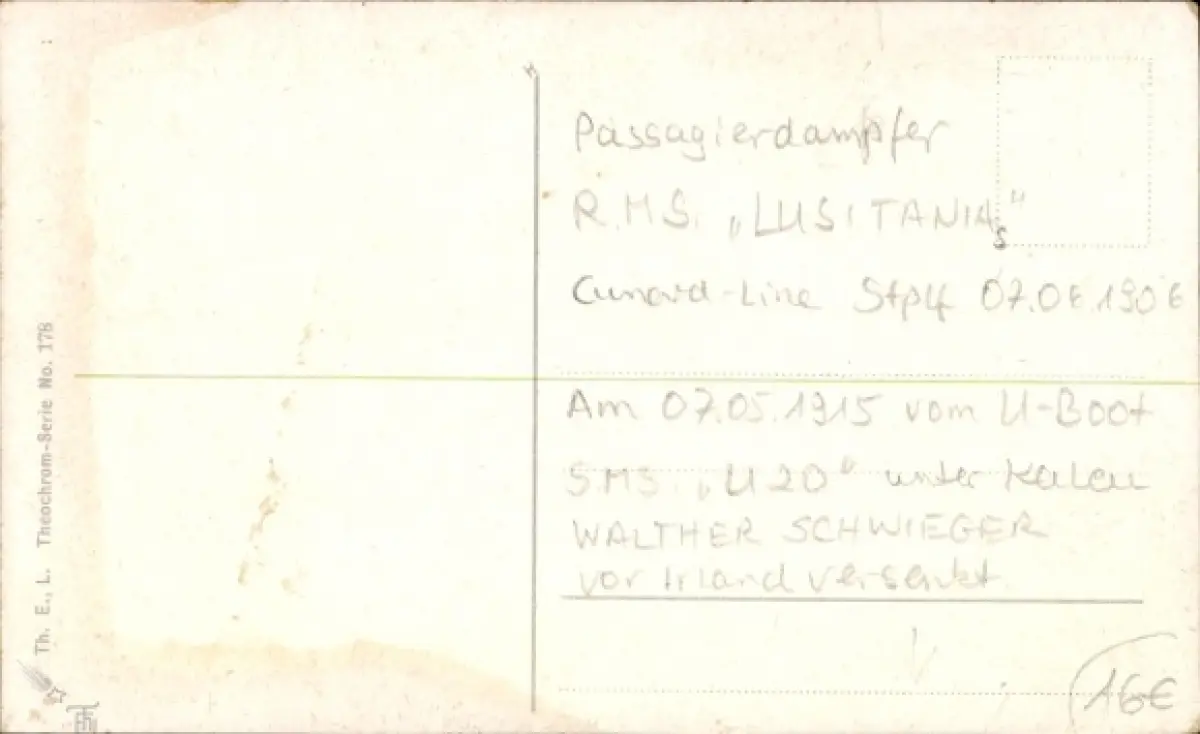 Passagierdampfer
R.M.S. „LUSITANIA"
s
Cunard-Line Stplf 07.06.1906
Am 07.05.1915 vom U-Boot
S.M.S. „U 20" unter Kaleu
WALTHER SCHWIEGER
vor Irland versenkt
16€
Th. E., L. Theochrom-Serie No. 178